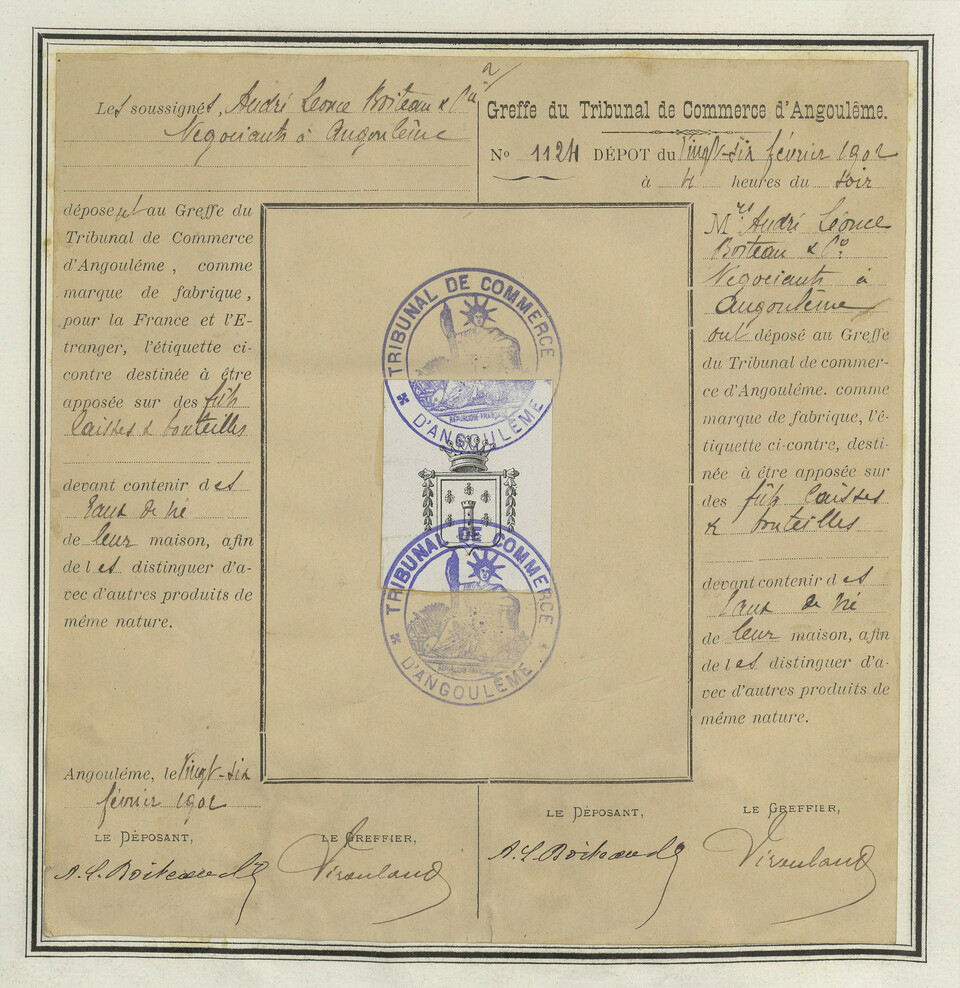 Les soussignés, André Léonce Boiteau & Cie
Négociants à Angoulême
déposent au Greffe du
Tribunal de Commerce
d'Angouléme, comme
marque de fabrique,
pour la France et l'E-
tranger, l'étiquette ci-
contre destinée à être
apposée sur des fûts
caisses & bouteilles
devant contenir des
Eaux de vie
de leur maison, afin
de les distinguer d'a-
vec d'autres produits de
même nature.
Angouléme, le Vingt-six
février 1902
LE DÉPOSANT,
A. L. Boiteau & Co
LE GREFFIER,
Greffe du Tribunal de Commerce d'Angoulême.
No 1124 DÉPOT du Vingt-six février 1902
à 4 heures du soir
Mrs André Léonce
Boiteau & Co
Négociants à
Angoulême
ont déposé au Greffe
du Tribunal de commer-
ce d'Angouléme. comme
marque de fabrique, l'é-
tiquette ci-contre, desti-
née à être apposée sur
des fûts caisses
& bouteilles
devant contenir des
Eaux de vie
de leur maison, afin
de les distinguer d'a-
vec d'autres produits de
même nature.
LE DÉPOSANT,
A. L. Boiteau & Co
LE GREFFIER,
TRIBUNAL DE COMMERCE
D'ANGOULÊME
REPUBLIQUE FRANÇ
TRIBUNAL DE COMMERCE
D'ANGOULÊME
REPUBLIQUE FRANÇ